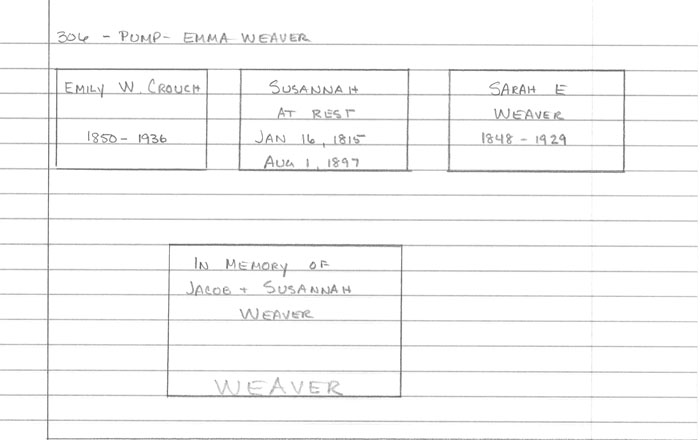 306 - PUMP - EMMA WEAVER
EMILY W. CROUCH
1850 - 1936
SUSANNAH
AT REST
JAN 16, 1815
AUG 1, 1897
SARAH E
WEAVER
1848 - 1929
IN MEMORY OF
JACOB + SUSANNAH
WEAVER
WEAVER